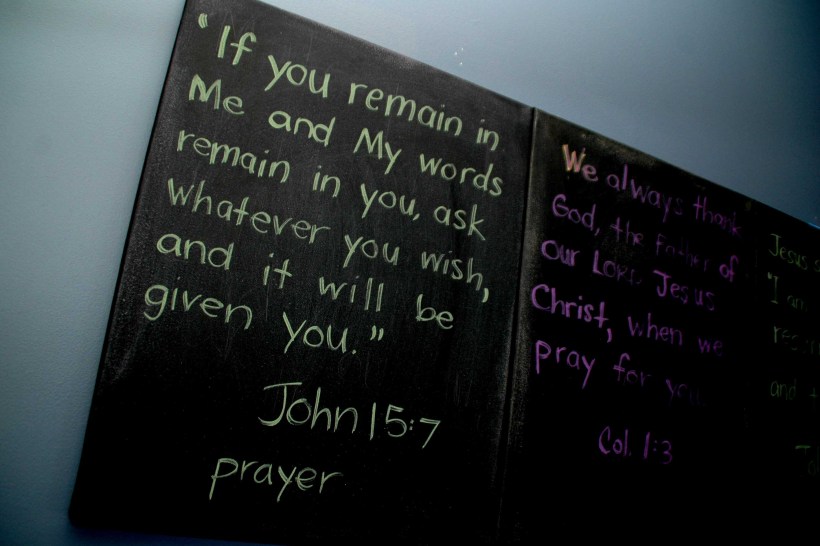 "If you remain in
Me and My words
remain in you, ask
whatever you wish,
and it will be
given you."
John 15:7
prayer
We always thank
God, the Father of
our Lord Jesus
Christ, when we
pray for you
Col. 1:3
Jesus
"I am
and